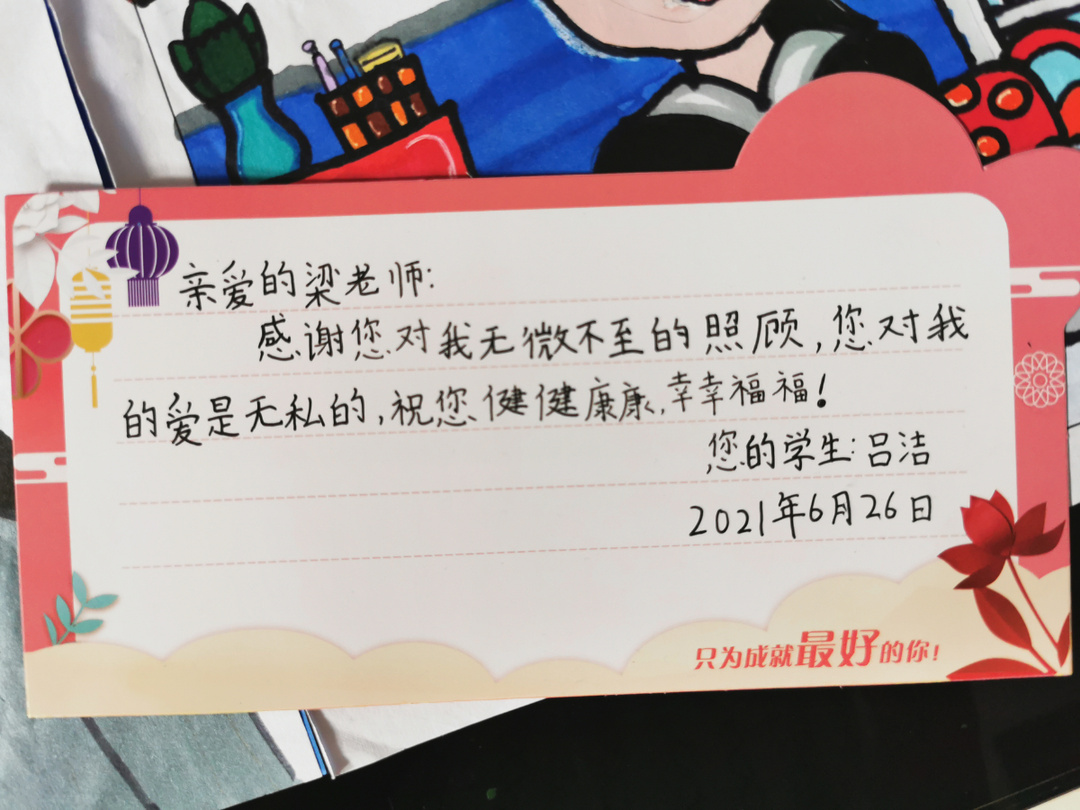 亲爱的梁老师:
感谢您对我无微不至的照顾,您对我
的爱是无私的,祝您健健康康,幸幸福福!
您的学生:吕洁
2021年6月26日
只为成就最好的你!